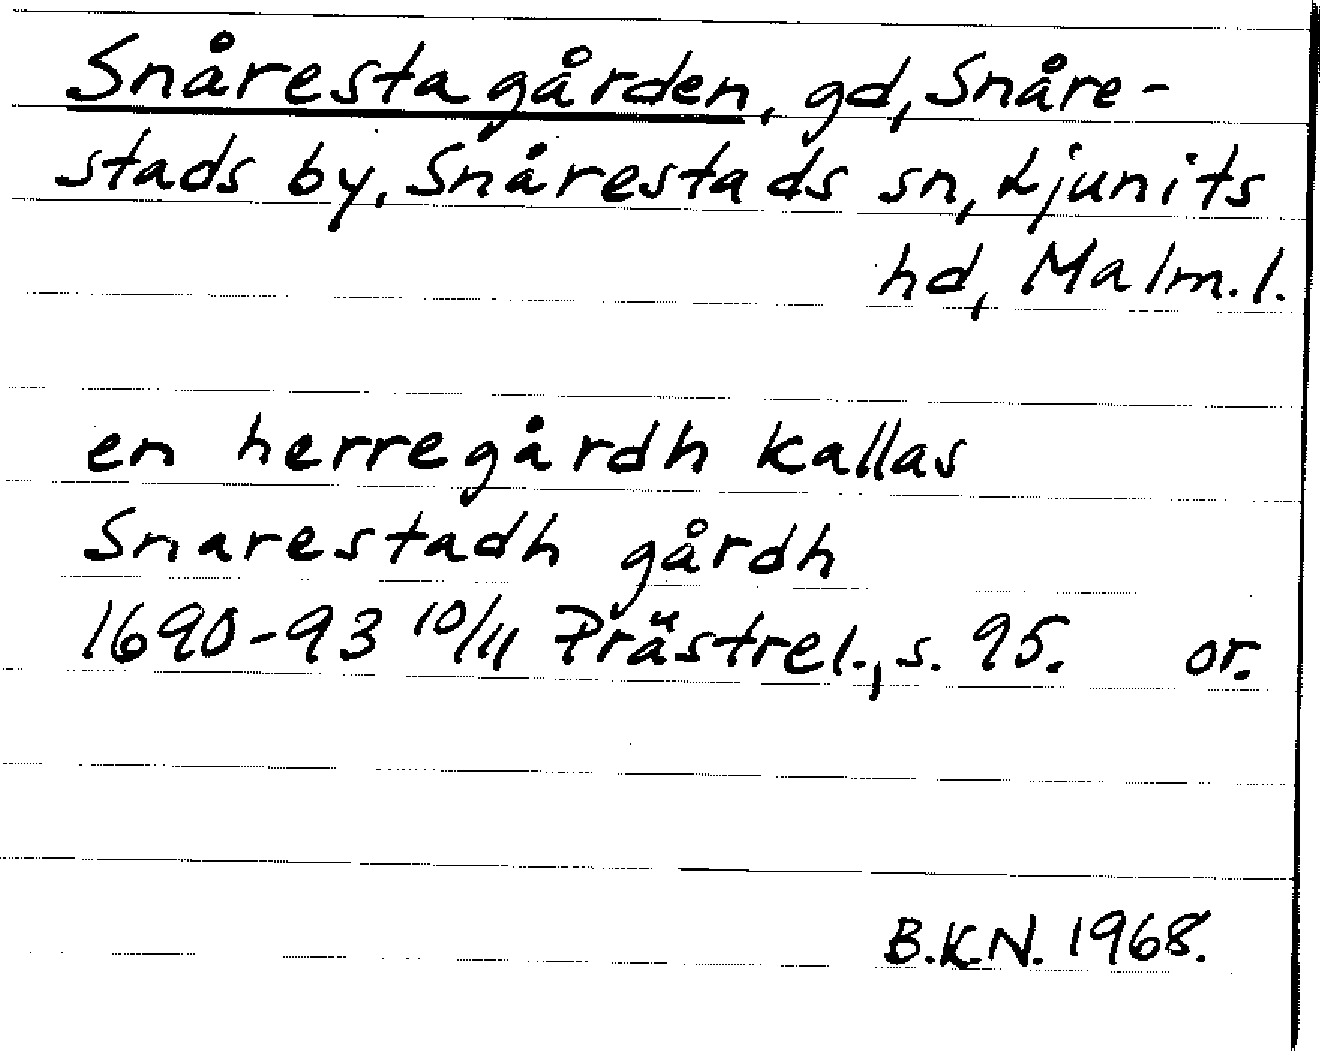 Snårestagården, gd, Snåre-
stads by, Snårestads sn, Ljunits
hd, Malm. l.
en herregårdh kallas
Snarestadh gårdh
1690-93 10/11 Prästrel., s. 95. or.
B.K.N. 1968.